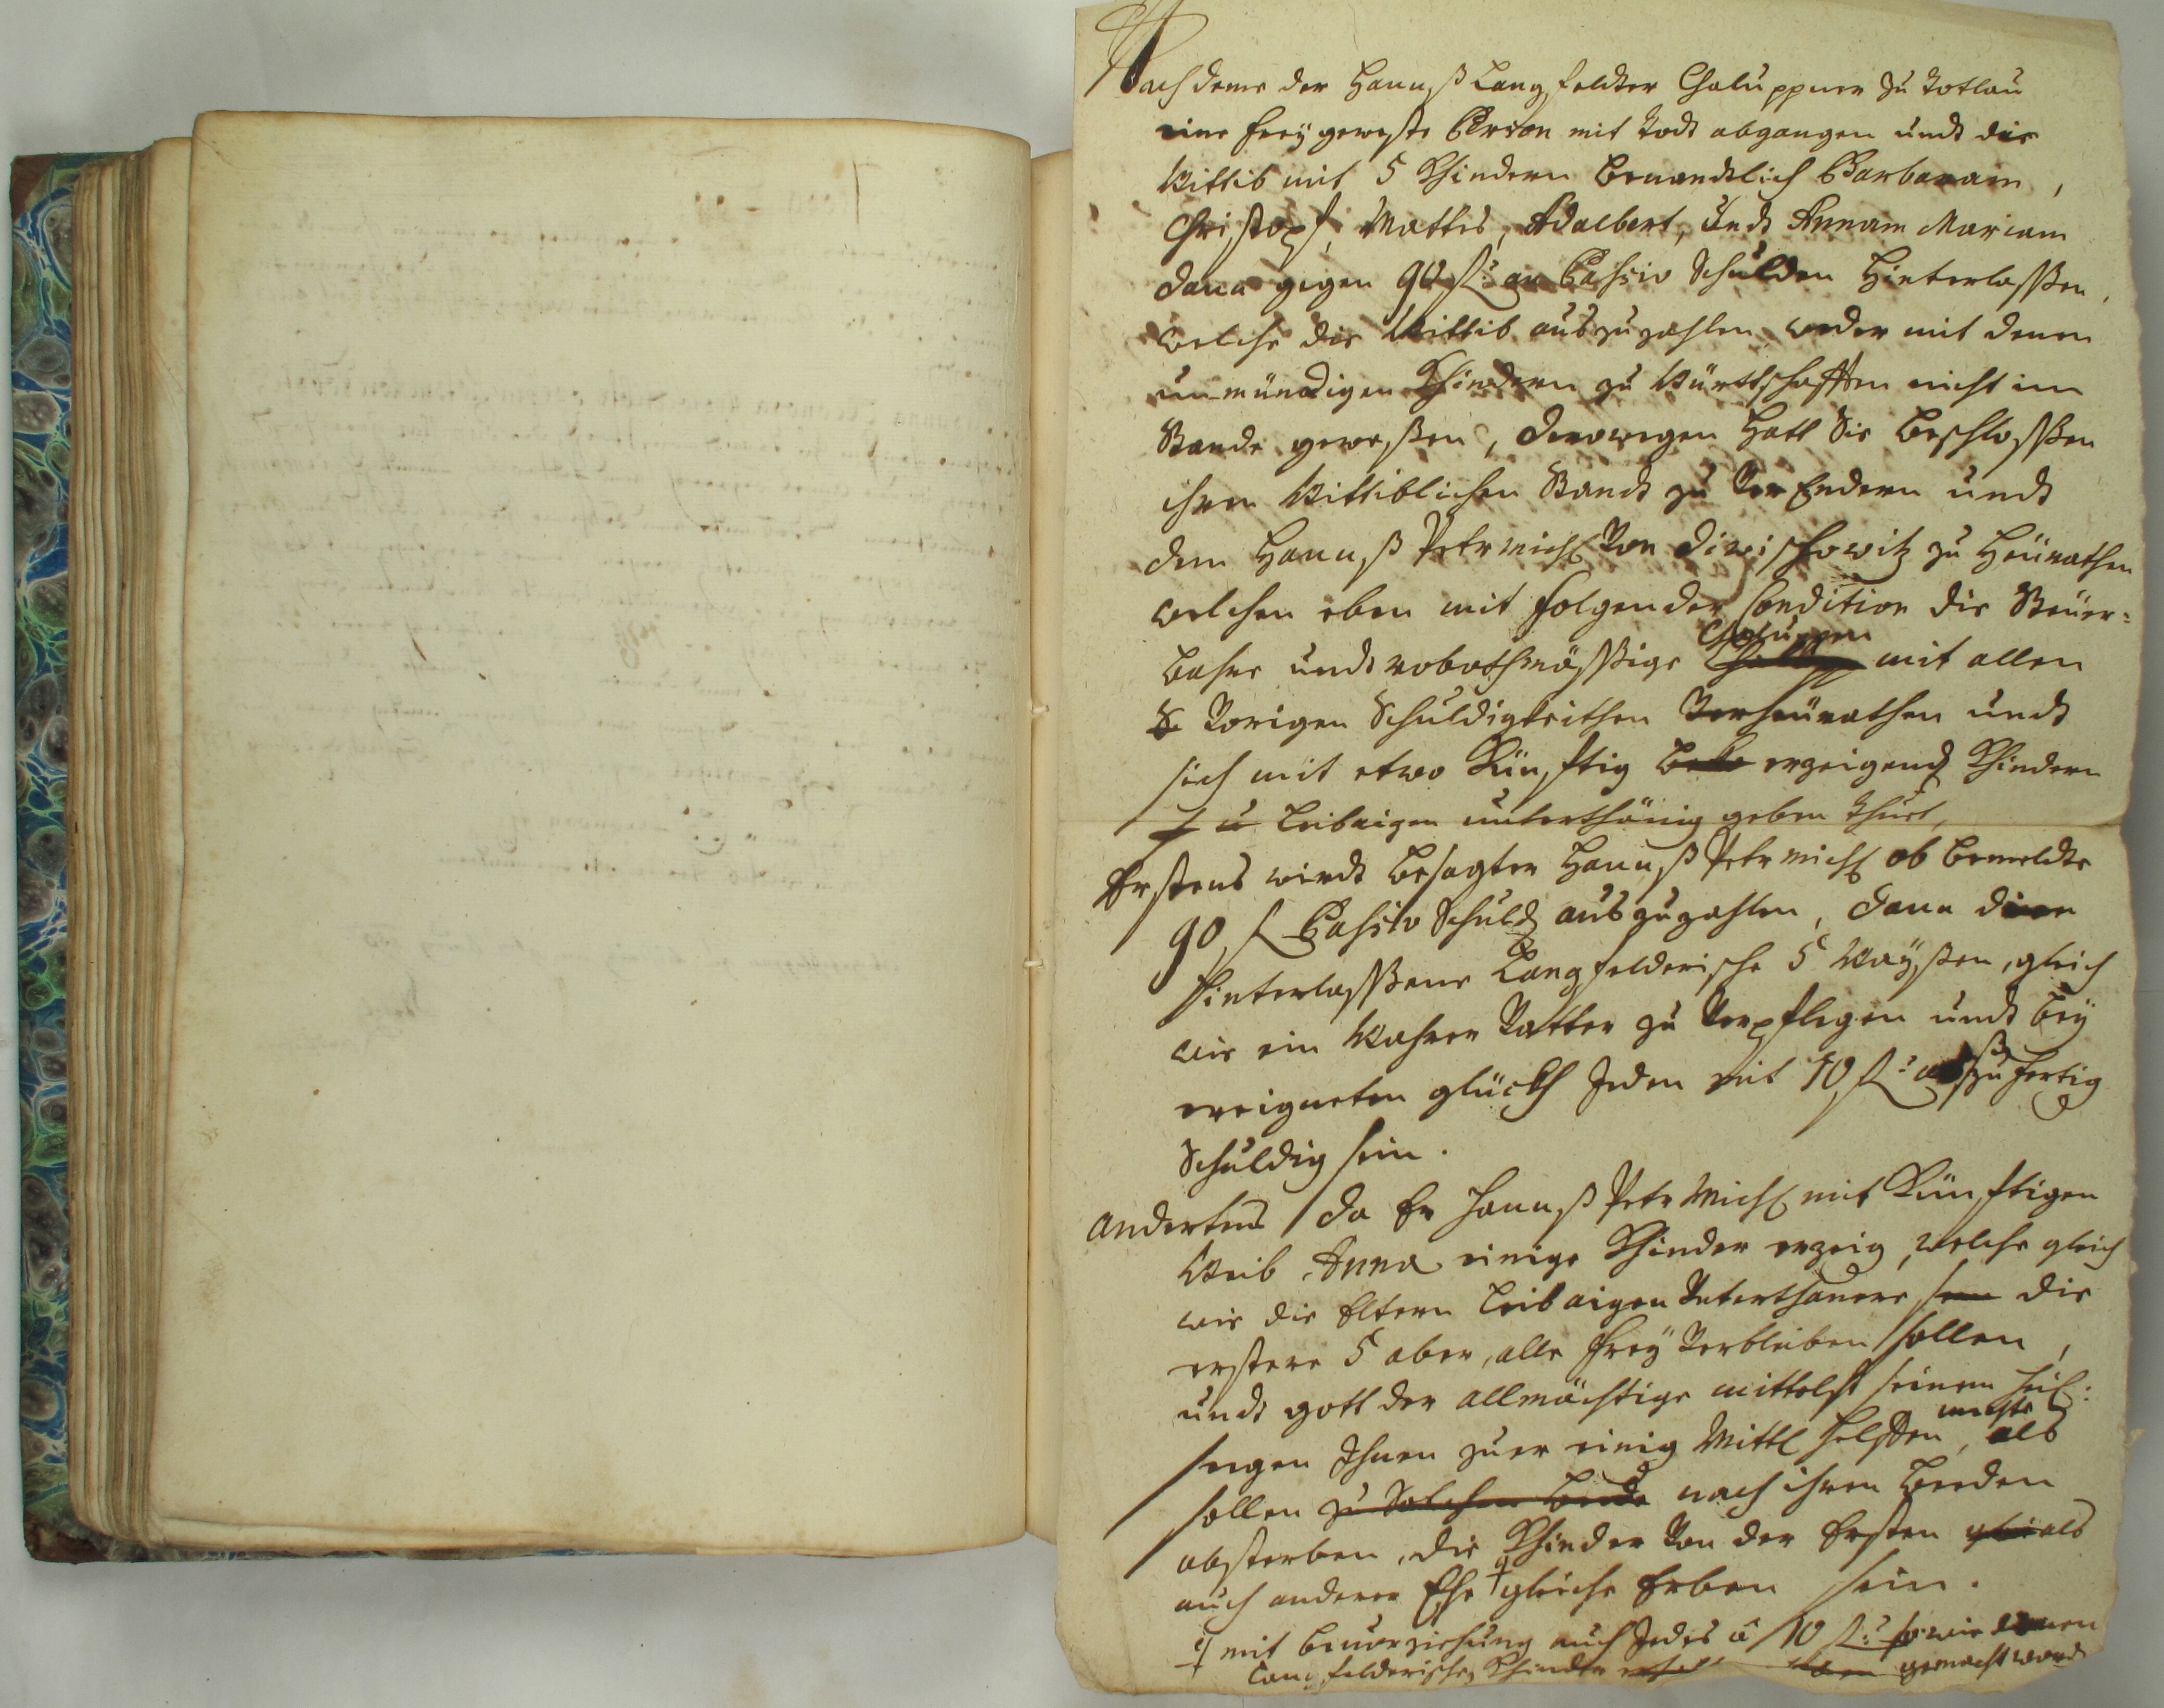 Nach deme der Hannß Langfeldter Chaluppner zu Kotlau
eine freÿ geweste Person mit Todt abgangen undt die
Wittib mit 5 Khindern benandtlich Barbaram,
Christoph, Mattes, Adalbert, undt Annam Mariam
dann gegen 90 f: an Passiv Schulden hinterlassßen,
welche die Wittib auszuzahlen, weder mit denen
unmündigen Khindern zu Würtschafften nicht im
Stande geweßen, derowegen hatt Sie beschlossßen
ihren Wittiblichen Standt zu verEndern undt
den Hannß Petrmichl von Diwischowitz zu heürathen
welchen eben mit folgender Condition die Steüer=
bahre undt robothmässßige Chaluppen mit allen
vorigen Schuldigkeithen verheürathen undt
sich mit etwo Künfftig erzeigend Khindern
leibaigen unterthänig geben thuet,
Erstens wirdt besagter Hannß Petrmichl ob bemeldte
90 f Passiv Schuld auszuzahlen, dann
hinterlassßene Langfelderische 5 Waÿßen, gleich
wie ein Wahrer Vatter zu verpflegen undt beÿ
ereigneten glückh Jeden mit 10 f: außzufertig
Schuldig sein.
Andertens da Er Hannß Petrmichl mit Künfftigen
Weib Anna einige Khinder erzeig, welche gleich
wie die Eltern leibaigen Unterthanere, die
erstere 5 aber, alle freÿ verbleiben sollen,
undt gott der allmächtige mittelst seinem heil:
seegen Ihnen zuer einig Mittl helffen mechte, als
sollen zu Solchen beede nach ihren beeden
absterben, die Khinder von der Ersten als
auch anderer Ehe gleiche Erben sein.
mit bevorziehung auch Jedes à 10 f: so wie denen
Langfelderischen Khinder gemacht word